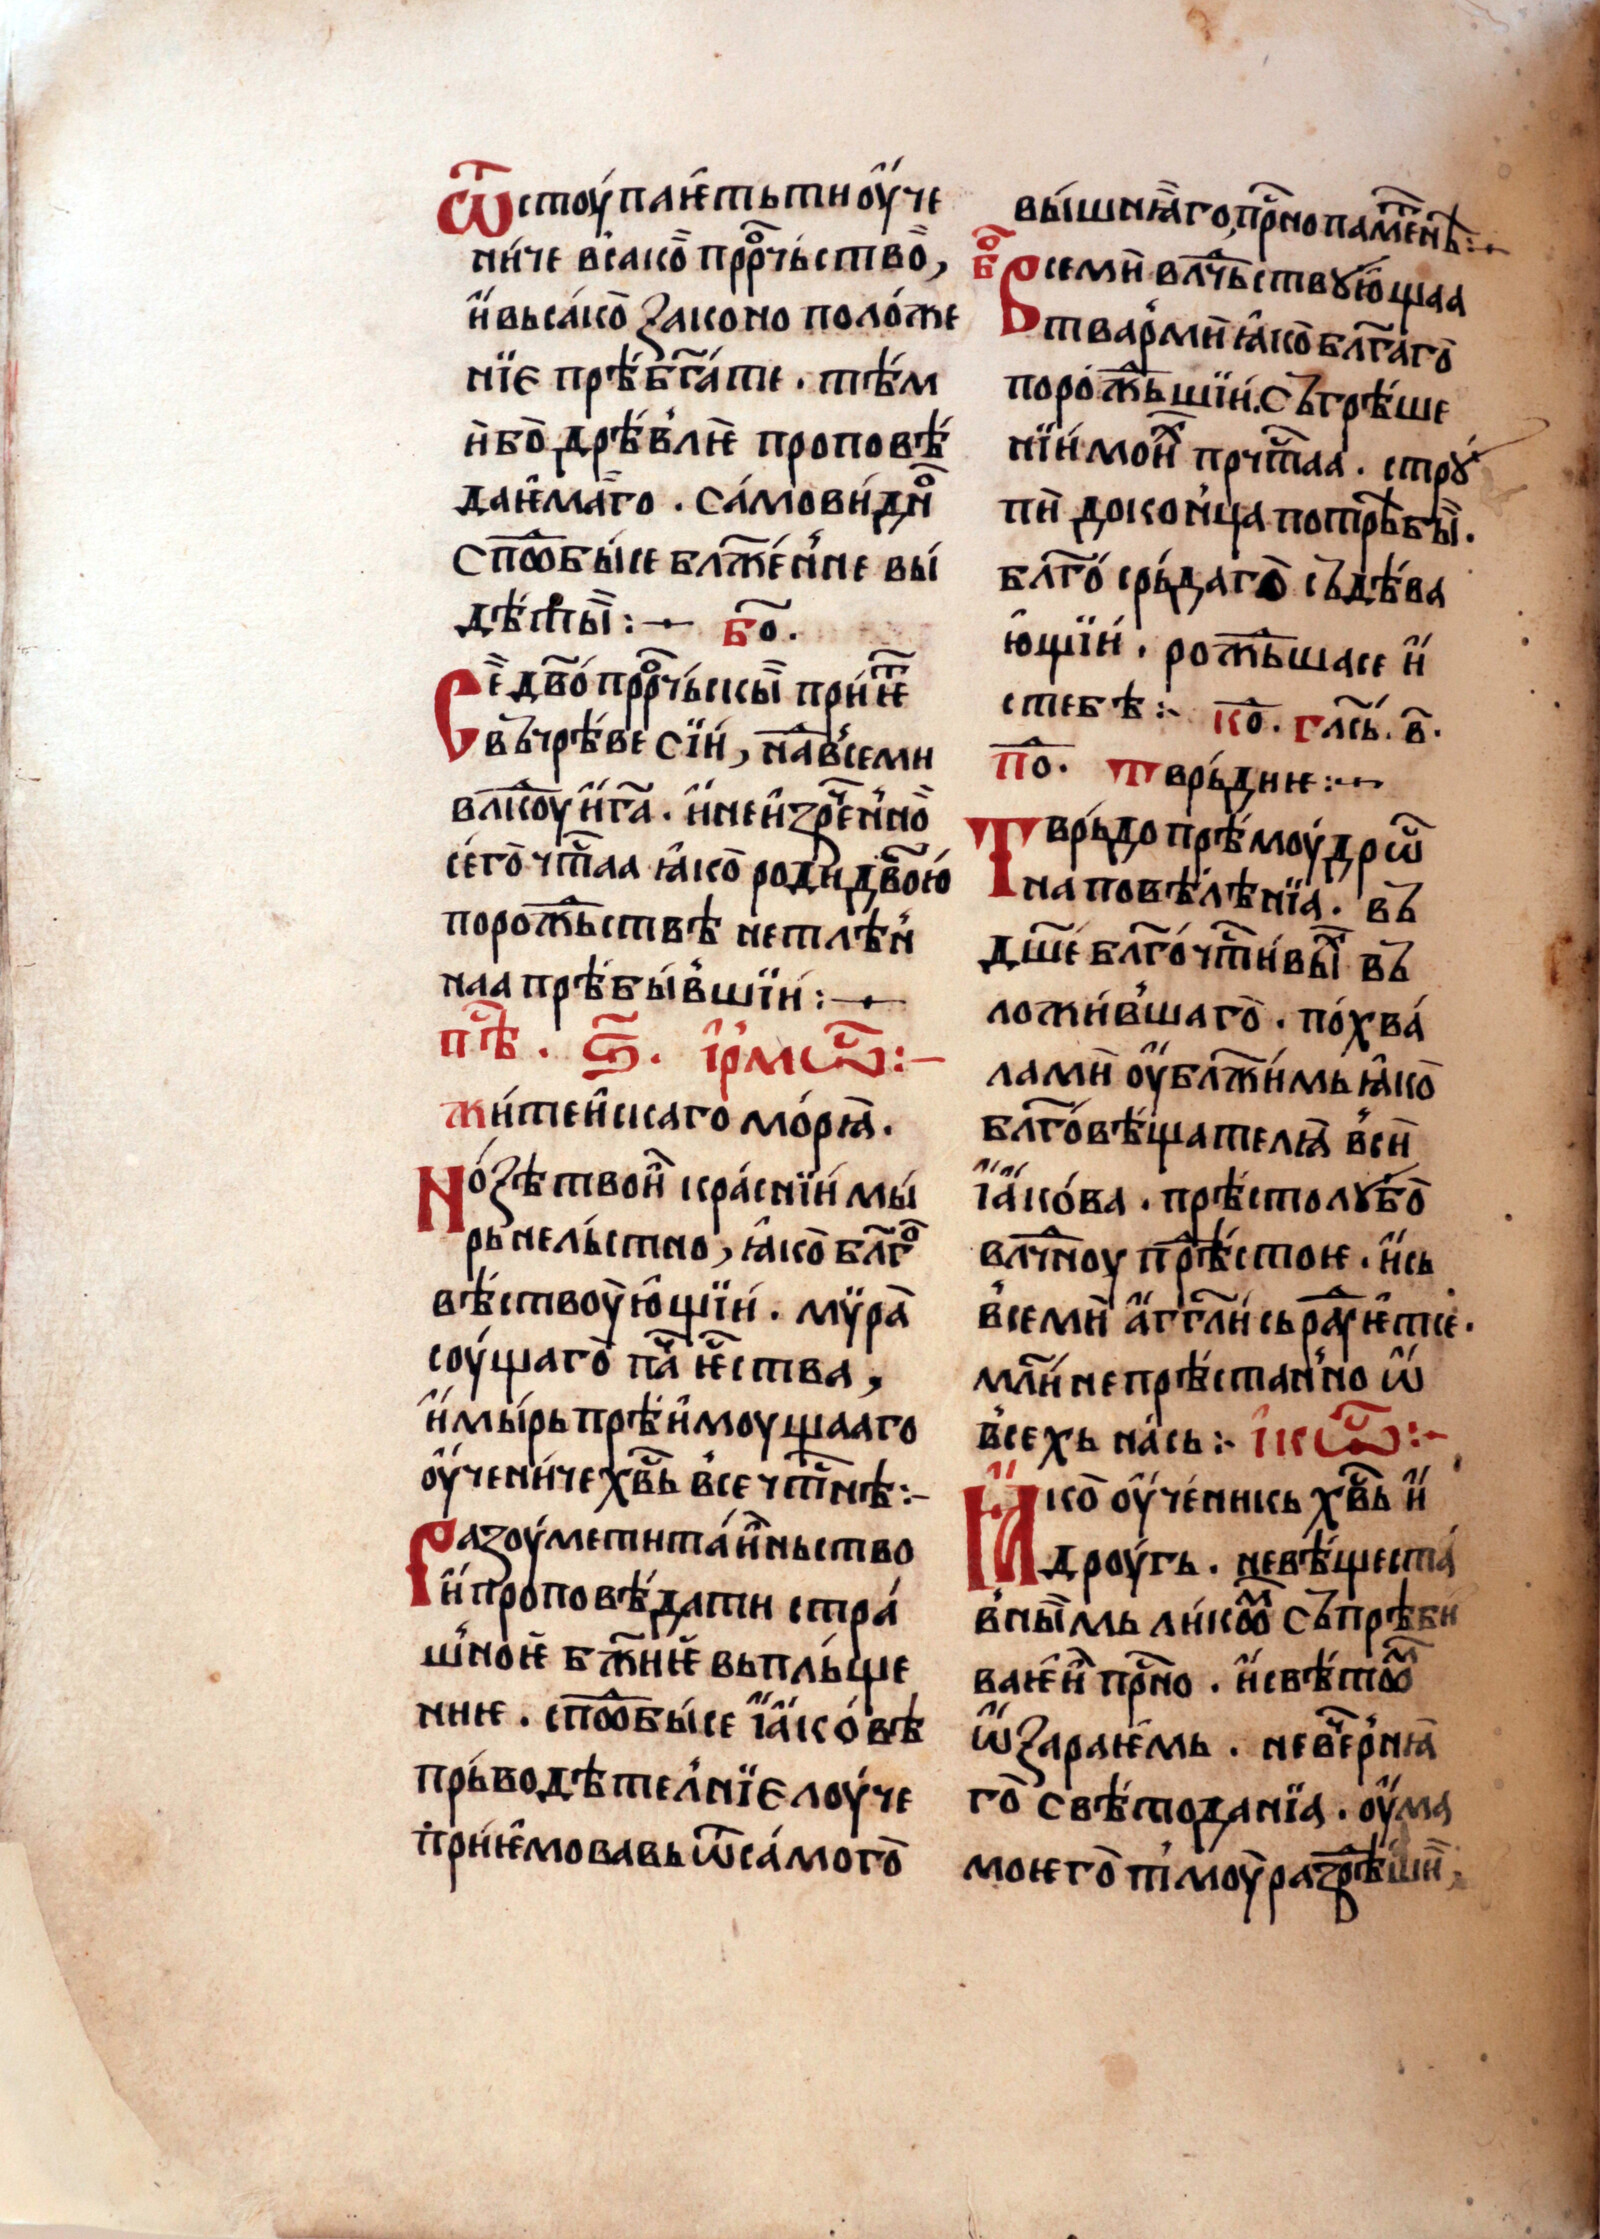 Ѿстоу́паѥ҆ть ти оу҆че
ни́че всако̀ прⷪ҇рчьство̀,
и҆ вьса́ко̀ законо поло́же
нїѥ прѣ́бг҃ате. тѣ́м
и҆бо̀ дрѣ́вл̾ѥ проповѣ́
даѥ҆маго. са́мови́днⷪ
спⷪ҇обы́се бл҃же́н̾не вы́
дѣ́ты̀:~ бо҃.
Се̏ дв҃о прⷪ҇рчьскы̀ при́ѥⷮ
въ чрѣ́ве сїи́, на́дв̾семи
влⷣкоу и҆га. и҆ неи҆зре́ннно̀
се́го̀ чⷭ҇таа ꙗ҆ко̀ роди дв҃ою
порожⷣьствѣ нетлѣ́н̾
наа прѣбы́в̾шїи́:~
пⷭ҇ѣ. ѕ҃. і҆рмѡⷭ:~
Жи́теи҆скаго мо́рꙗ.
Но́зѣ твои̏ кра́снїи́ мы́
рь нельстно, ꙗ҆ко̀ блгⷪ
вѣ́ствоую҆щїи́. мѷ́ра
соу́щаго̀ па́ч ѥⷭ҇ства,
и҆ мы́рь прѣи҆моущааго
оу҆чени́че хв҃ь в̾се чⷭ҇тнѣ:~
Разоу́мети та́и҆ньство
и҆ проповѣ́дати стра́
ш̾ноѥ̏ бжⷭ҇ниѥ̏ вьпльще
ниѥ. спⷪ҇обы́се і҆а҆ко́вѣ
прь́водѣтел̾нїѥ лоу́че
при́ѥ҆мовавь ѿ са́мого̀
вы́шнꙗ̀го, прⷭ҇но паме́тнь:~
бⷪ҇ Всеми̏ влⷣчьствꙋю҆щаа
твар̾ми̏ ꙗ҆ко̀ бл҃гаго̀
поро́жⷣьшїи́. съгрѣ́ше
нїи́ мои̏ⷯ прчⷭ҇таа. стрꙋ́
пи̏ до кон̾ца потрѣ́бы̏.
бл҃го́ срь́даго̀ съдѣ́ва
ю҆щїи́. рожⷣьшасе и҆
с тебѣ:~ ко҃. гла́сь. в҃.
По҃. Тврь́диѥ:~
Тврь́до прѣ́моу́дрѡ҃
на повѣ́лѣнїа. въ
дш҃е́ бл҃гочⷭ҇ти́вы̏ⷯ въ
ложи́в̾шаго̀. по́хва́
лами̏ оу҆бл҃жи́мь ꙗ҆ко̀
бл҃го́вѣ́щателꙗ̀ в̾си̏
і҆а҆ко́ва. прѣ́столꙋ̀бо̀
влⷣчноу прⷣѣ́стоѥ. и҆ сь
в̾семи̏ а҆гг҃ли́ сь радꙋ́ѥ҆тсе.
мл҃и́ непрѣ́стан̾но ѡ҆
в̾сехь на́сь:~ і҆кѡⷭ:~
Ꙗ҆ко̀ оу҆че́никь хв҃ь и҆
дроу́гь. невѣ́щеста́
в̾ны̏мь ли́кⷪмⷨ съпрѣби́
ваѥи̏ прⷭ҇но. и҆ свѣ́тⷪⷨ
ѡ҆зараѥ҆мь. неве́чер̾нꙗ̀
го̀ свѣ́тоданїа. оу҆ма
моѥго̀ т̾моу̀ разрѣ́ши̏,